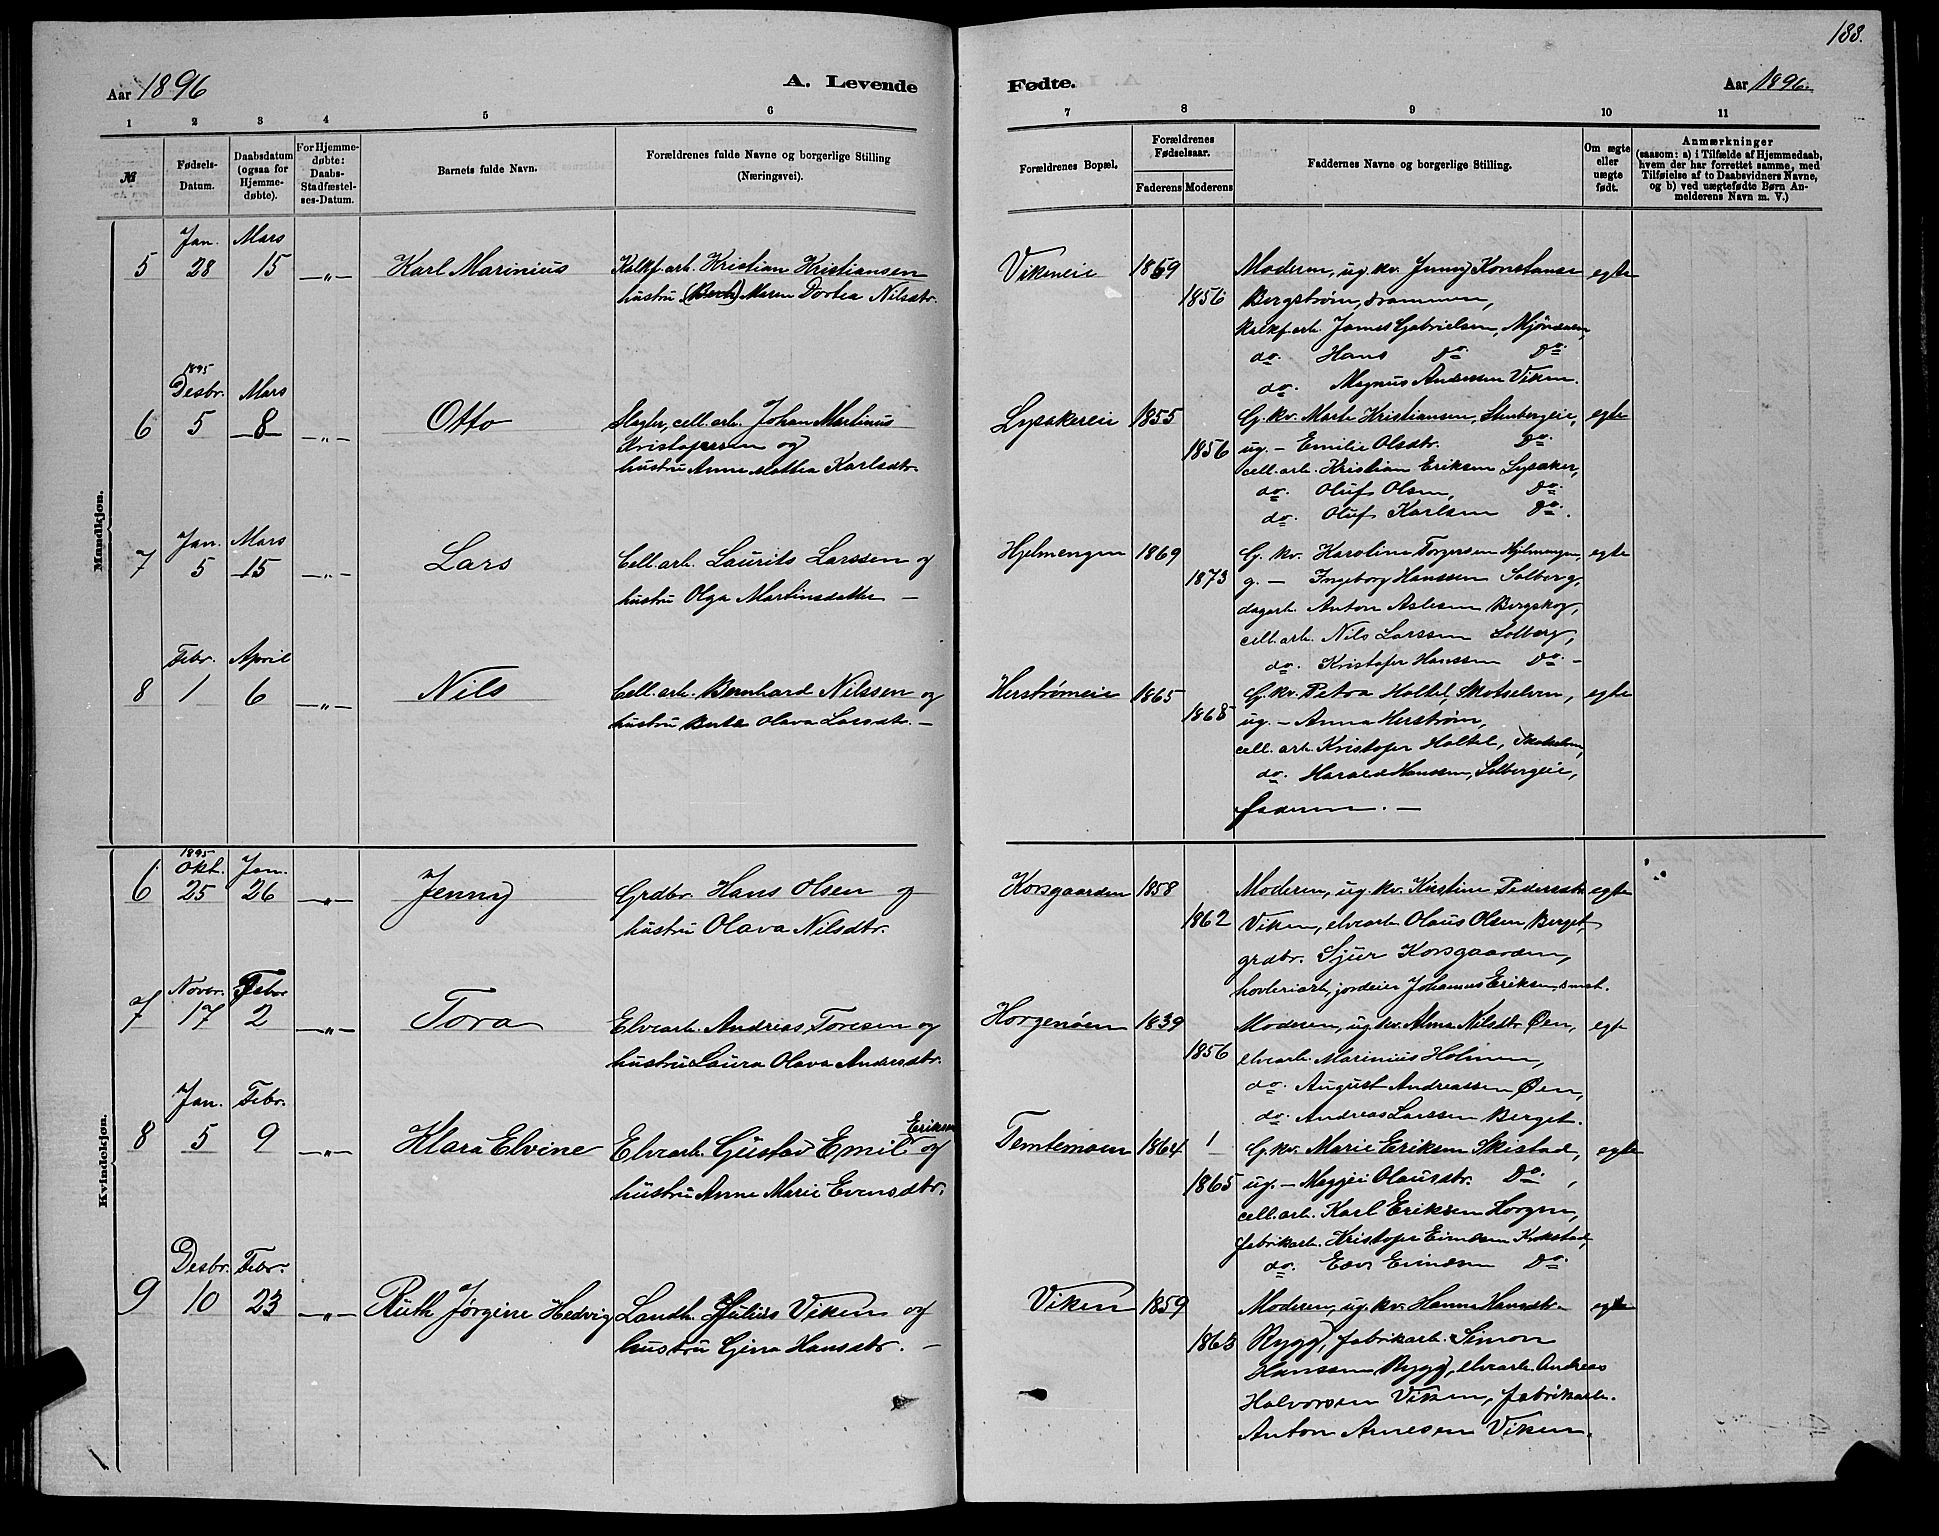 188.
Aar 1896
A. Levende
Fødte.
Aar 1896.
1 2 3 4 5 6 7 8 9 10 11
№
Fødsels-
Datum.
Daabsdatum
(ogsaa for
Hjemme-
døbte).
For Hjemme-
døbte:
Daabs-
Stadfæstel-
ses-Datum.
Barnets fulde Navn.
Forældrenes fulde Navne og borgerlige Stilling
(Næringsvei).
Forældrenes Bopæl.
Forældrenes
Fødselsaar.
Faderens Moderens
Faddernes Navne og borgerlige Stilling.
Om ægte
eller
uægte
født.
Anmærkninger
(saasom: a) i Tilfælde af Hjemmedaab,
hvem der har forrettet samme, med
Tilføielse af to Daabsvidners Navne,
og b) ved uægtefødte Børn An-
melderens Navn m. V.)
Mandkjøn.
Jan. Mars
5 28 15 —„— Karl Marinius
Kalkf.arb. Kristian Kristiansen
hustru Maren Dortea Nilsdtr.
Vikeneie 1869
1856
egte
Moderen, ug. kv. Jenny Konstanse
Bergstrøm, Drammen,
kalkf.arb. James Gabrielsen, Mjøndalen,
do. Hans do. do.
do. Magnus Andersen Viken.
1895
Desbr. Mars
6 5 8 —„— Otto
cell. arb. Johan Martinus
Kristofersen og
hustru Anne Mathea Karlsdtr.
Lysakereie 1855
1856
egte
G. kv. Marte Kristiansen, Stenbergeie,
ug. — Emilie Olsdtr. do.
cell. arb. Kristian Eriksen Lysaker,
do. Oluf Olsen, do.
do. Oluf Karlsen do.
Jan. Mars
7 5 15 —„— Lars
Cell. arb. Laurits Larssen og
hustru Olga Martinsdatter —
Hjelmengen 1869
1873
egte
G. kv. Karoline Torgersen Hjelmengen,
g. — Ingeborg Hanssen Solberg,
dagarb. Anton Aslesen Bergskog,
cell. arb. Nils Larssen Solberg,
do. Kristofer Hanssen do. —
Febr. April
8 1 6 —„— Nils
Cell. arb. Bernhard Nilssen og
hustru Berte Olava Larsdtr. —
Herstrømeie 1865
1868
egte
G. kv. Petra Holtet, Skotselven,
ug. — Anna Herstrøm,
cell. arb. Kristofer Holtet, Skotselven,
do. Harald Hanssen, Solbergeie,
faderen. —
Kvindekjøn.
1895
Okt. Jan.
6 25 26 —„— Jenny
Grdbr. Hans Olsen og
hustru Olava Nilsdtr.
Korsgaarden 1858
1862
egte
Moderen, ug. kv. Kirstine Pedersdtr.
Viken, elvearb. Olaus Olsen Berget,
grdbr. Sjur Korsgaarden,
høvleriarb., jordeier Johannes Eriksen,
Novbr. Febr
7 17 2 —„— Tora
Elvearb. Andreas Toresen og
hustru Laura Olava Andersdtr.
Horgenøen 1839
1856
egte
Moderen, ug. kv. Alma Nilsdtr. Øen,
elvearb. Marinius Holmen,
do. August Andreassen Øen,
do. Andreas Larssen Berget.
Jan. Febr.
8 5 9 —„— Klara Elvine
Elvearb. Gustav Emil Eriksen og
hustru Anne Marie Evensdtr.
Temtemoen 1864
1865
egte
G. kv. Marie Eriksen Skistad,
ug. — Magji Olausdtr. do.,
cell. arb. Karl Eriksen Horgen,
fabrikarb. Kristofer Evensen Krokstad,
do. Even Evensen do.
Desbr. Febr.
9 10 23 —„— Ruth Jørgine Hedvig
Landh. Julius Viken og
hustru Gina Hansdtr. —
Viken 1859
1863
egte
Moderen, ug. kv. Hanna Hansdtr.
Rygg, fabrikarb. Simon
Hanssen Rygg, elvearb. Andreas
Halvorsen Viken, fabrikarb.
Anton Arnesen Viken.